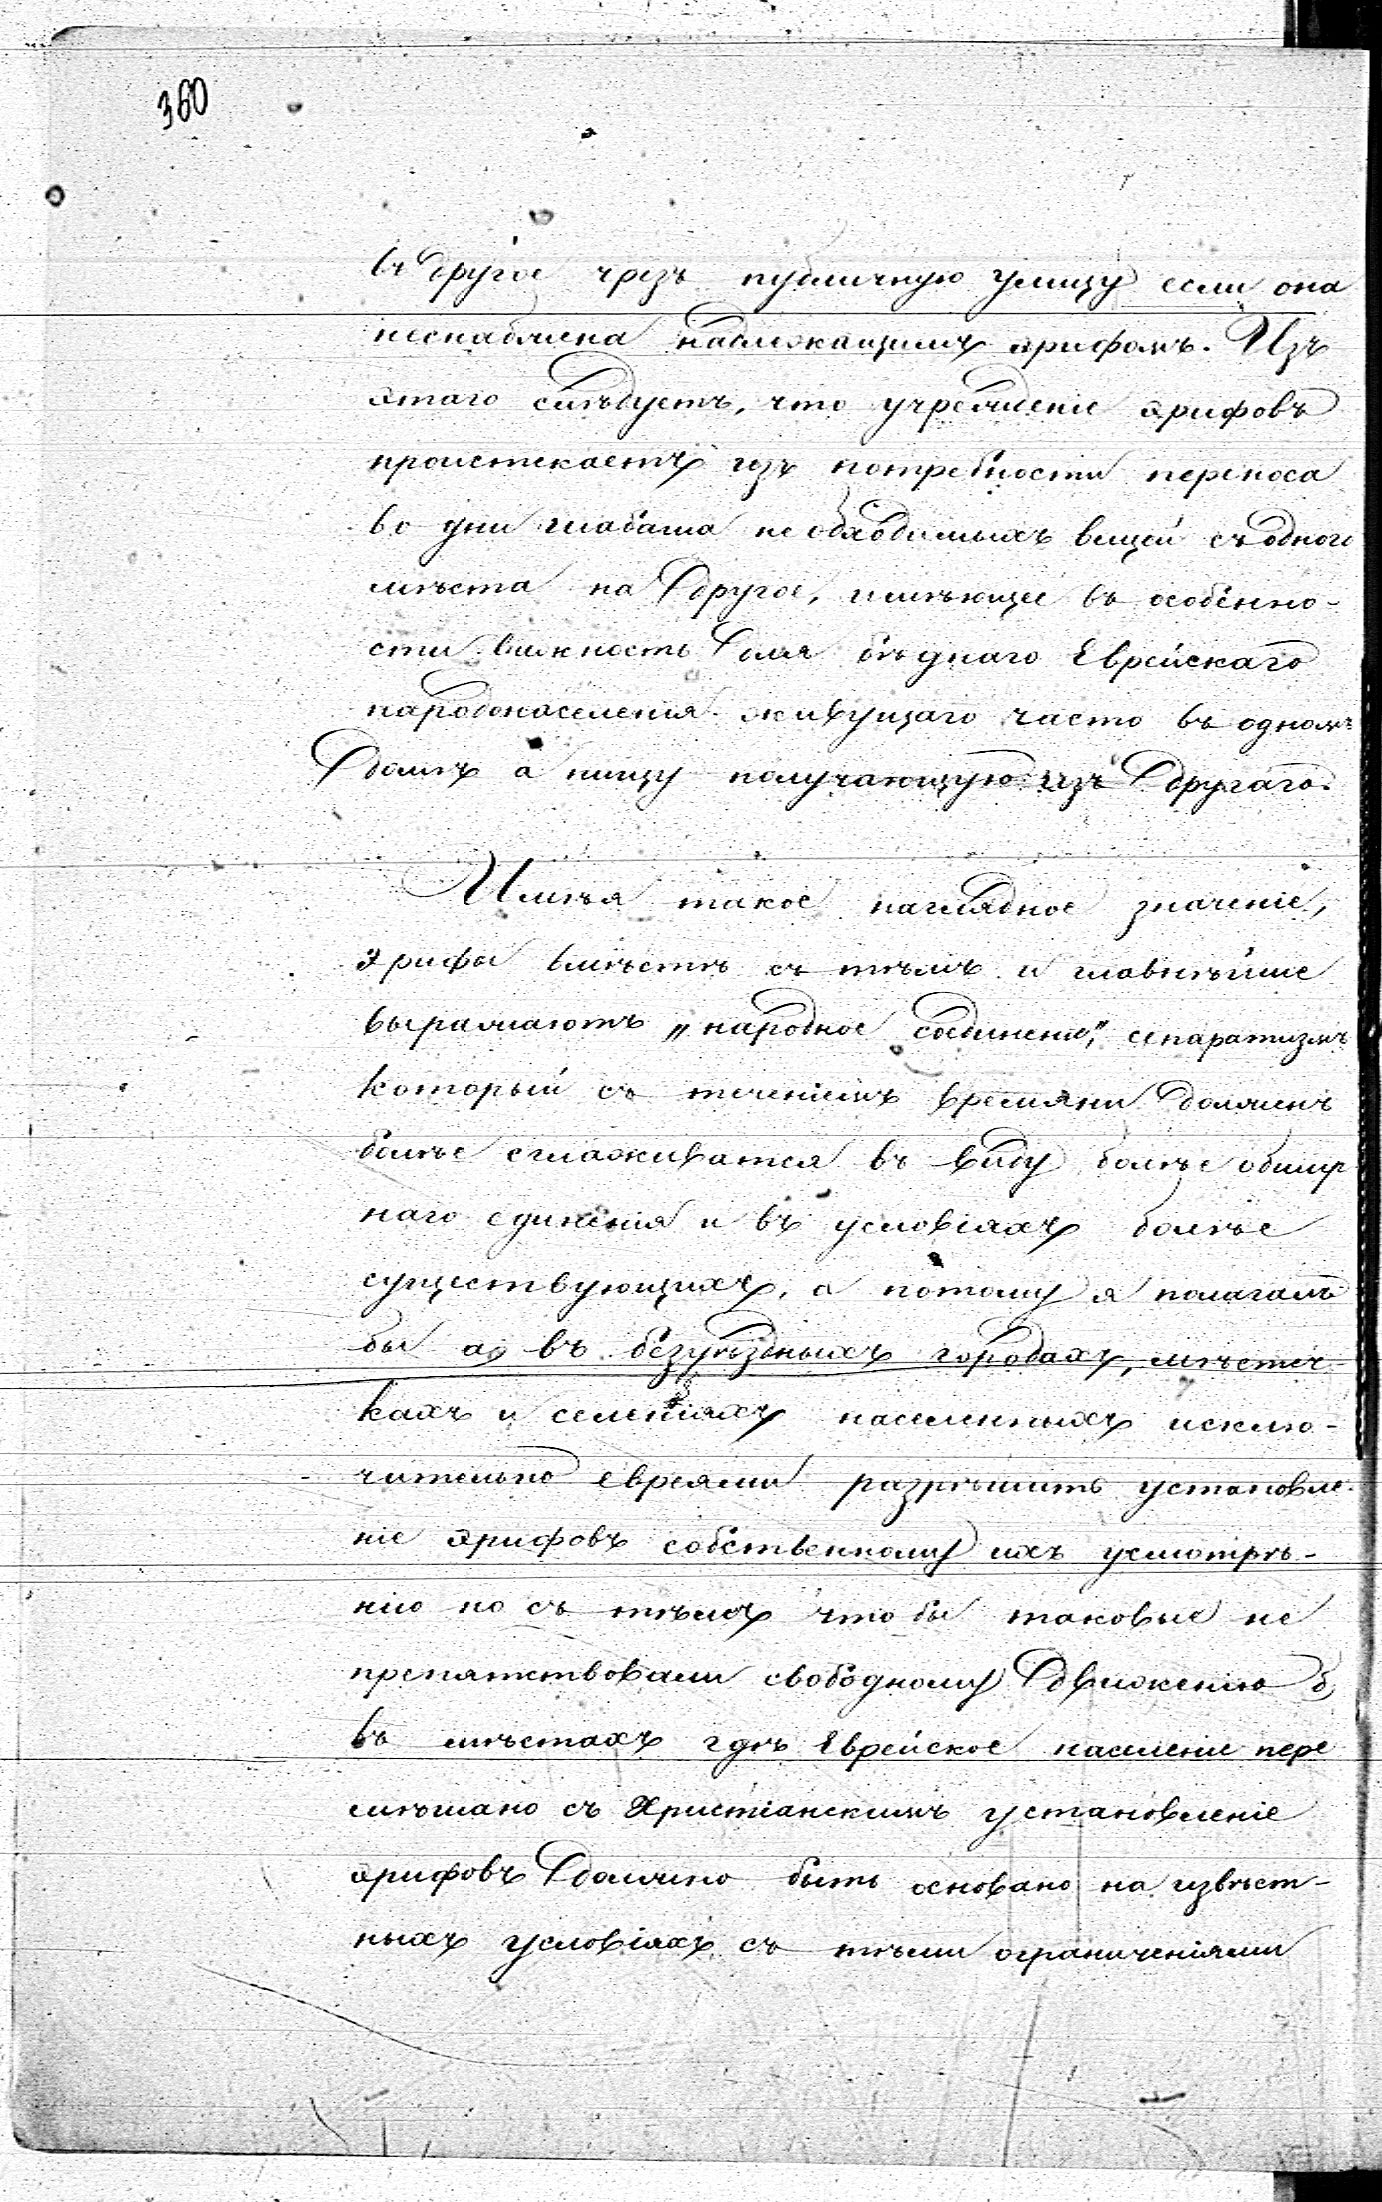 360
въ другое чрезъ публичную улицу если она
неснабжена надлежащимъ эрифомъ. Изъ
этаго слѣдуетъ, что учрежденіе эрифовъ
проистекаетъ изъ потребности переноса
во дни шабаша необходимыхъ вещей съ одного
мѣста на другое, имѣющее въ особенно-
сти важность для бѣднаго Еврейскаго
народонаселенія живущаго часто въ одномъ
домѣ а пищу получающую изъ другаго.
Имѣя такое наглядное значеніе,
эрифы вмѣстѣ съ тѣмъ и главнѣйше
выражаютъ „народное соединеніе," сепаратизмъ
который съ теченіемъ времяни долженъ
болѣе сглаживатся въ виду болѣе обшир
наго единенія и въ условіяхъ болѣе
существующихъ, а потому я полагалъ
бы а) въ безуѣздныхъ городахъ, мѣстеч-
кахъ и селеніяхъ населенныхъ исклю-
чительно евреями разрѣшить установле-
ніе эрифовъ собственному ихъ усмотрѣ-
нію но съ тѣмъ что бы таковые не
препятствовали свободному движенію б,
въ мѣстахъ гдѣ Еврейское населеніе пере
мѣшано съ Христіанскимъ установленіе
эрифовъ должно быть основано на извѣст-
ныхъ условіяхъ съ тѣми ограниченіями